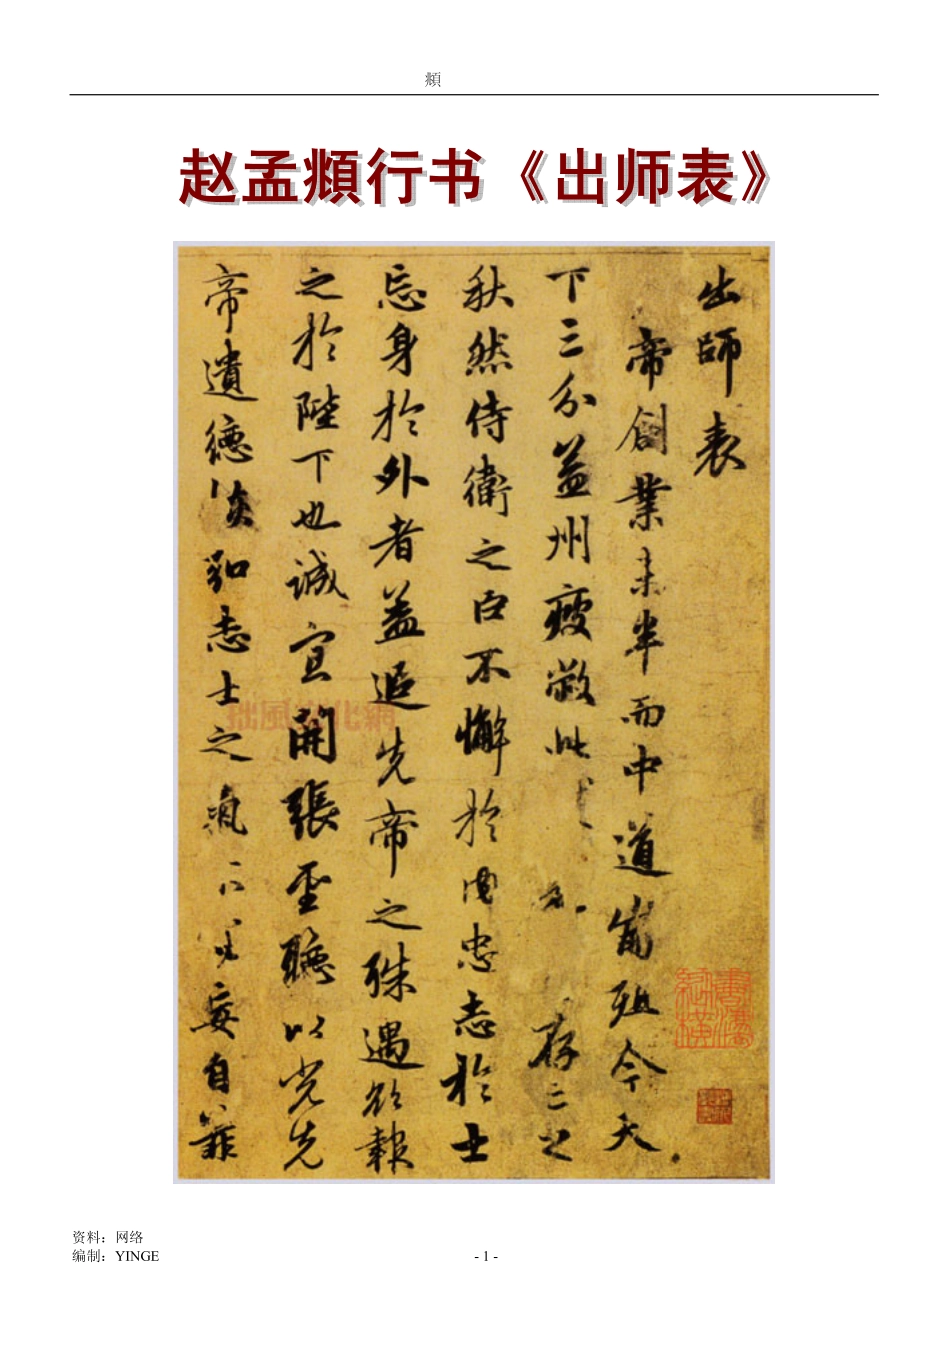 頫
赵孟頫行书《出师表》
出師表
帝創業未半而中道崩殂今天
下三分益州疲敝此存亡之
秋然侍衛之臣不懈於内忠志於士
忘身於外者蓋追先帝之殊遇欲報
之於陛下也誠宜開張聖聽以光先
帝遺德恢弘志士之氣不宜妄自菲
拙風文化網
资料：网络
编制：YINGE
- 1 -